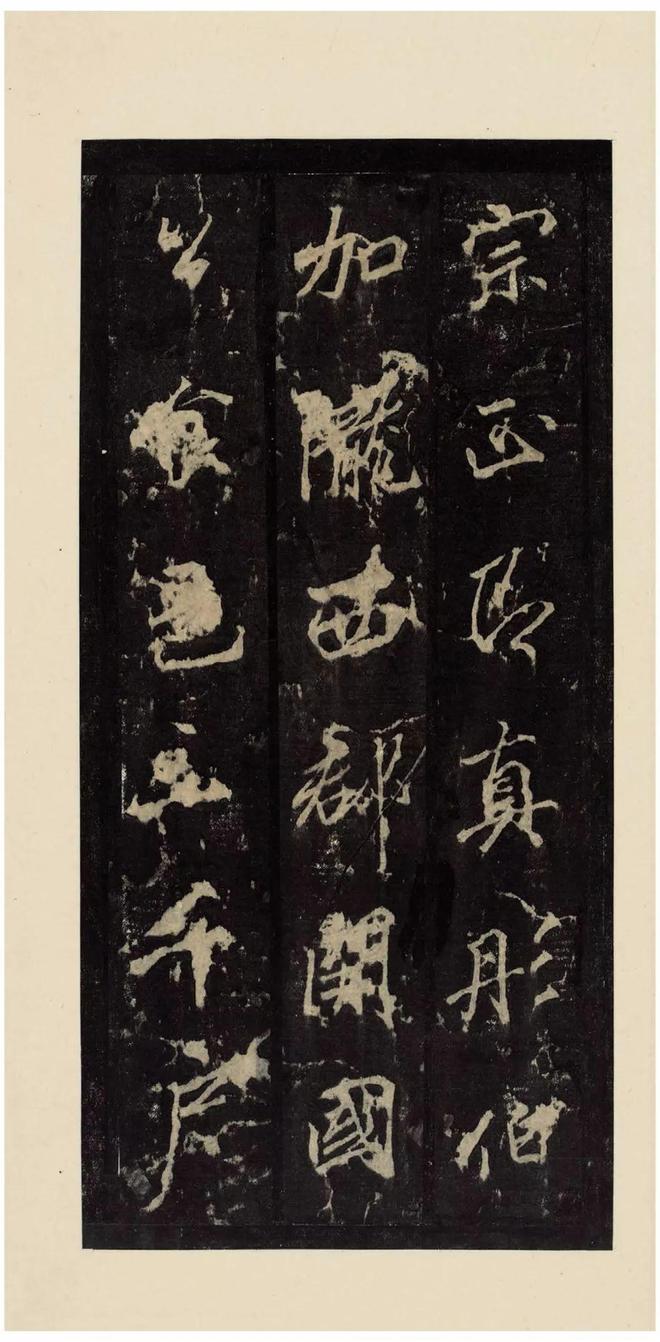 宗正即真彤伯
加隴西郡開國
公食邑二千戶